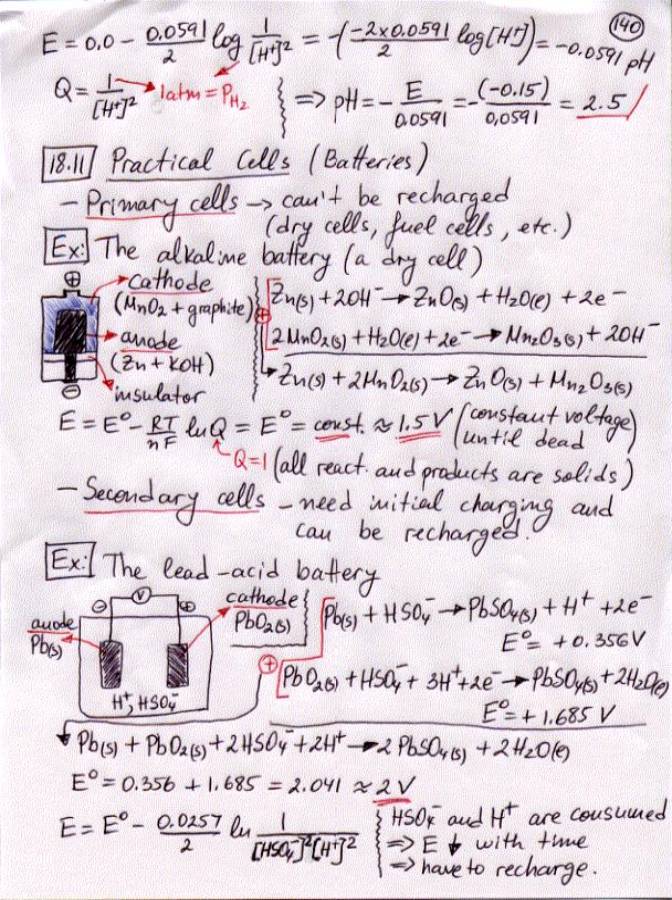 140
E = 0.0 - 0.0591/2 log 1/[H⁺]² = -(-2×0.0591/2 log[H⁺]) = -0.0591 pH
Q = 1/[H⁺]² → 1atm = P_H₂ ⇒ pH = - E/0.0591 = - (-0.15)/0.0591 = 2.5
18.11 Practical Cells (Batteries)
- Primary cells → can't be recharged
(dry cells, fuel cells, etc.)
Ex: The alkaline battery (a dry cell)
⊕
cathode
(MnO₂ + graphite)
anode
(Zn + KOH)
insulator
⊖
⊕
Zn(s) + 2OH⁻ → ZnO(s) + H₂O(ℓ) + 2e⁻
2MnO₂(s) + H₂O(ℓ) + 2e⁻ → Mn₂O₃(s) + 2OH⁻
Zn(s) + 2MnO₂(s) → ZnO(s) + Mn₂O₃(s)
E = E° - RT/nF ln Q = E° = const. ≈ 1.5 V (constant voltage until dead)
Q=1 (all react. and products are solids)
- Secondary cells - need initial charging and
can be recharged.
Ex: The lead-acid battery
⊖ V ⊕
anode
Pb(s)
cathode
PbO₂(s)
H⁺, HSO₄⁻
⊕
Pb(s) + HSO₄⁻ → PbSO₄(s) + H⁺ + 2e⁻
E° = +0.356V
PbO₂(s) + HSO₄⁻ + 3H⁺ + 2e⁻ → PbSO₄(s) + 2H₂O(ℓ)
E° = +1.685 V
Pb(s) + PbO₂(s) + 2HSO₄⁻ + 2H⁺ → 2PbSO₄(s) + 2H₂O(ℓ)
E° = 0.356 + 1.685 = 2.041 ≈ 2 V
E = E° - 0.0257/2 ln 1/[HSO₄⁻]²[H⁺]²
HSO₄⁻ and H⁺ are consumed
⇒ E ↓ with time
⇒ have to recharge.